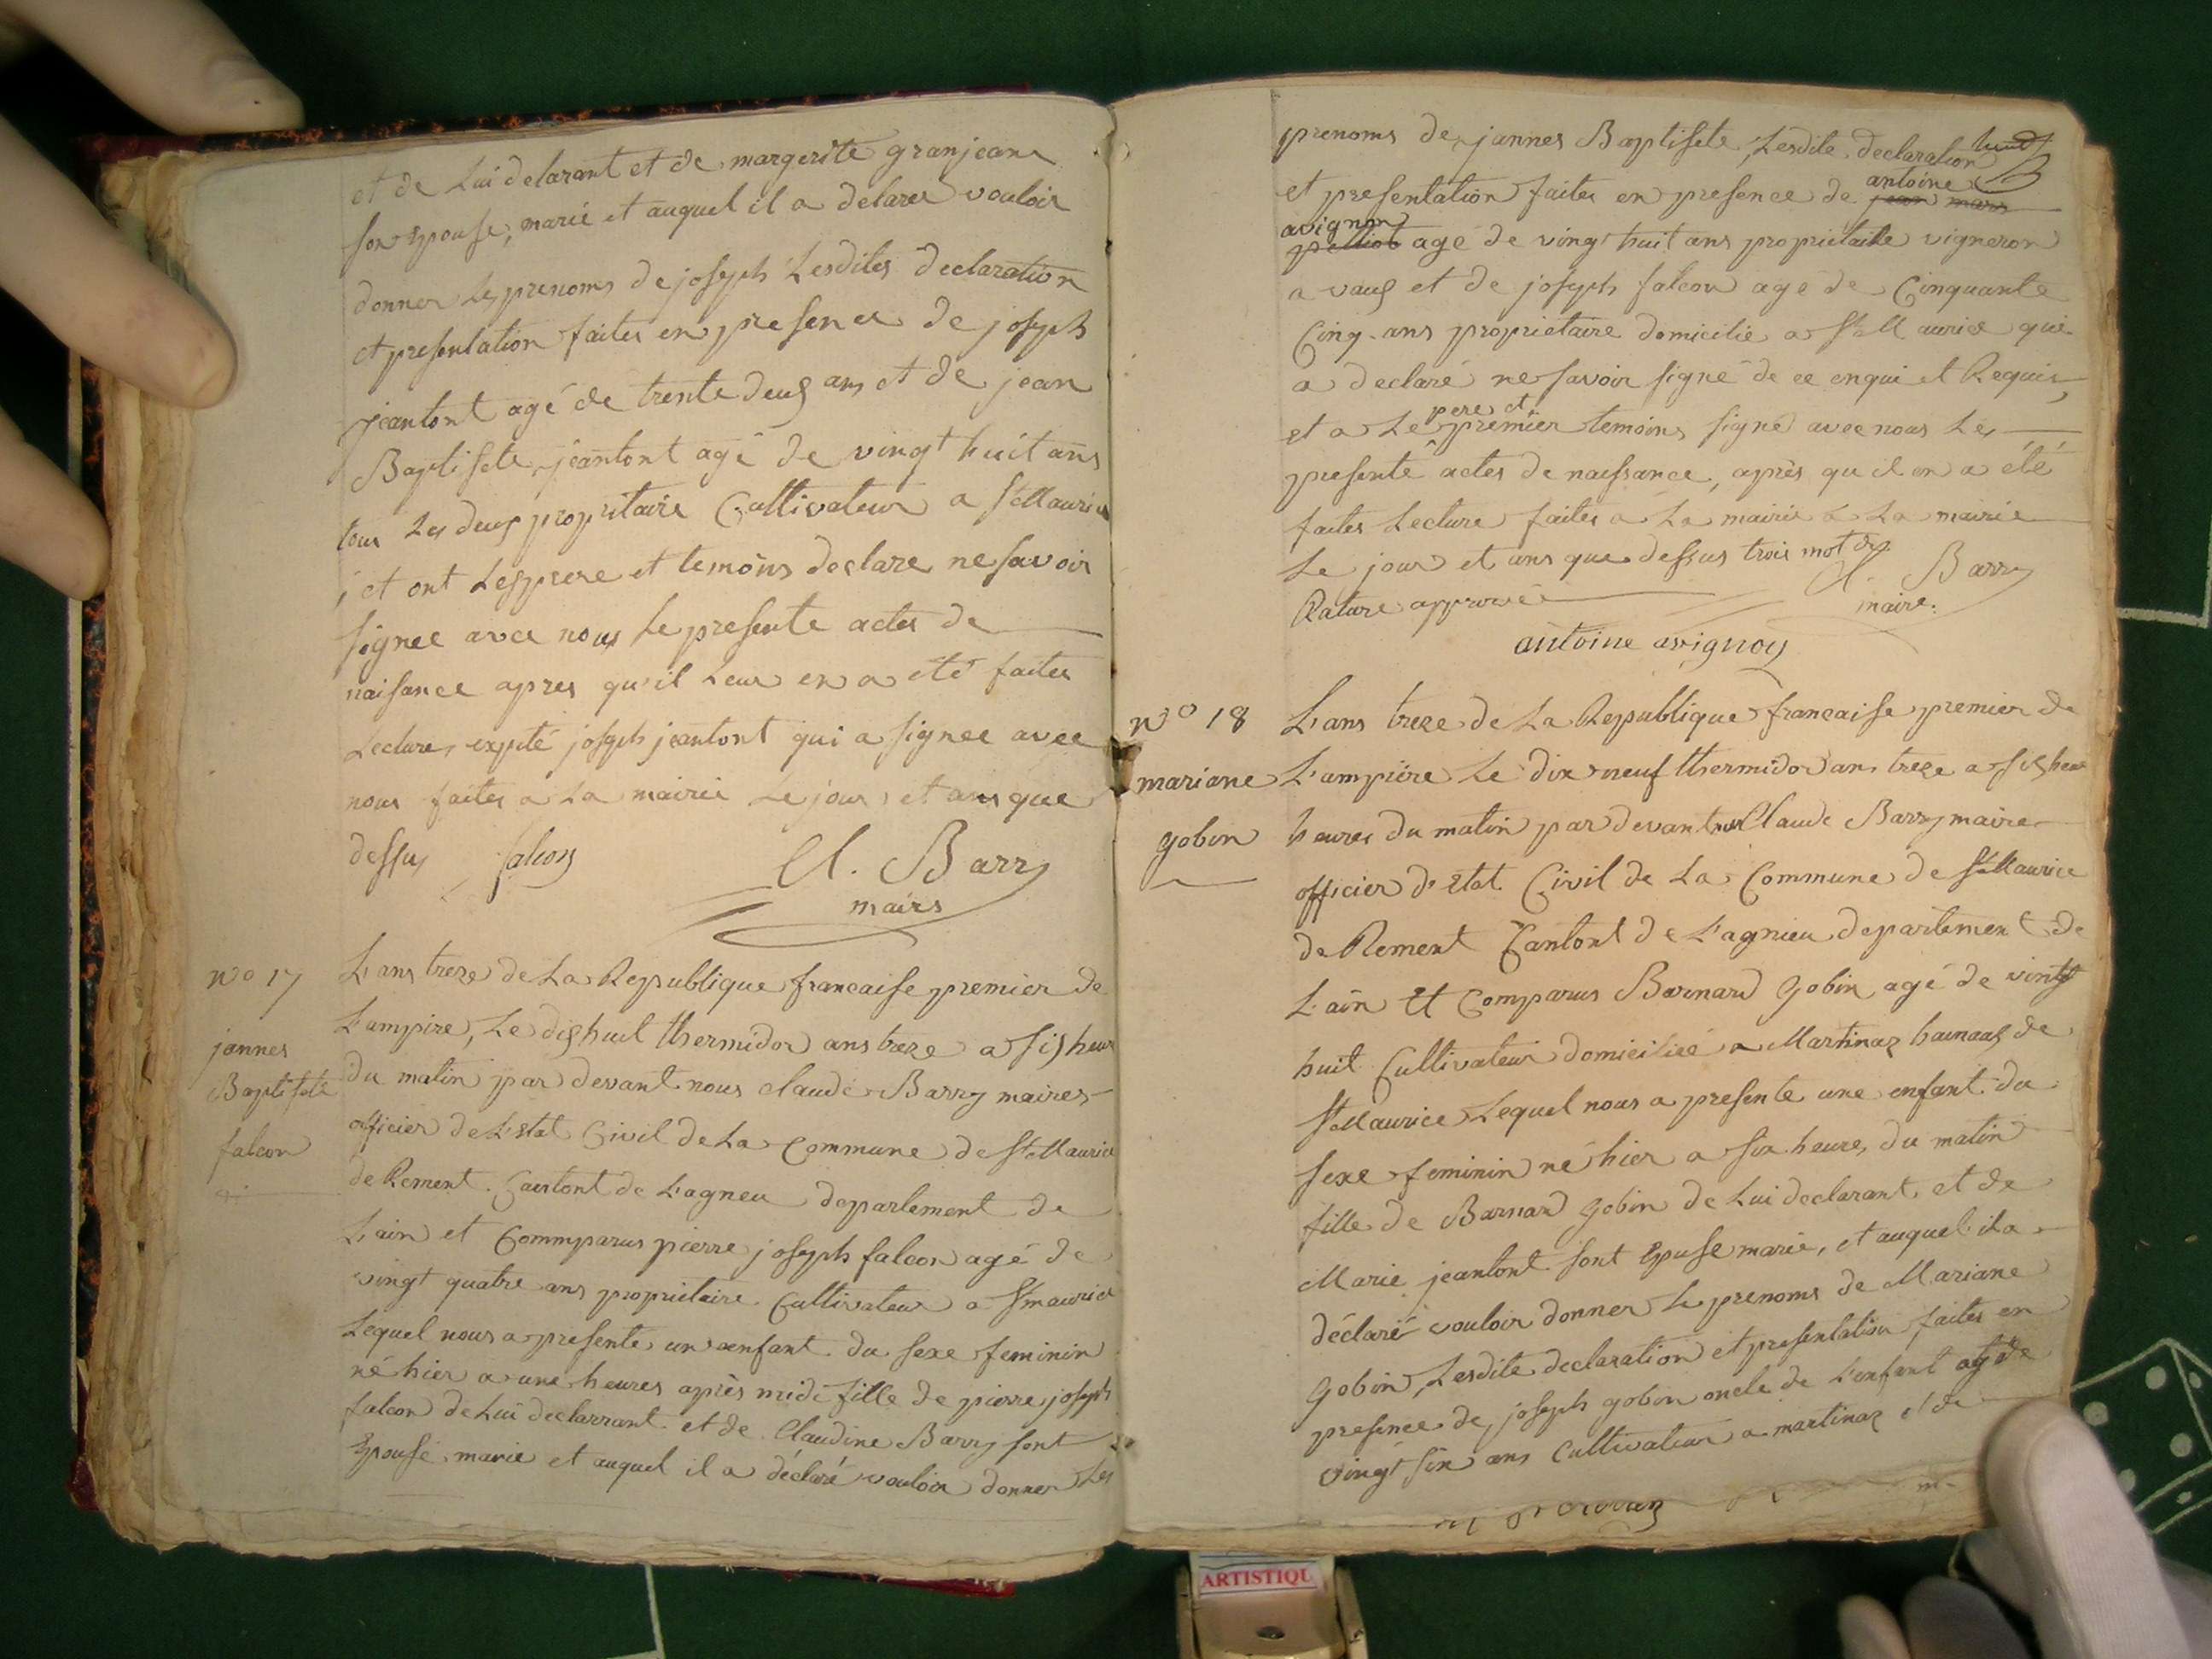 et de Lui delarant et de margerite granjean
son Epouse, marié et auquel il a delarer vouloir
donner Les prenoms de joseph Lesdites declaration
et presentation faites en presence de joseph
jeantont agé de trente deux ans et de jean
Baptisete jeantont agé de vingt huit ans
tous Les deux propritaire Cultivateur a St Maurice
, et ont Les pere et temoins declare ne savoir
signee avec nous Le presente actes de
naisance apres qu'il Leur en a été faites
Lecture, expté joseph jeantont qui a signee avec
nous faites a La mairie Le jour et ans que
dessus falcon Cl. Barry
maire
No 17
L'ans treze de La Republique francaise premier de
L'ampire, Le dix huit thermidor ans treze a six heure
jannes
Baptisete
falcon
du matin par devant nous claude Barry maires
officier de L'Etat Civil de La Commune de St Maurice
de Rement. Cantont de L'agneu departement de
L'ain et Commparus pierre joseph falcon agé de
vingt quatre ans proprietaire Cultivateur a St maurice
Lequel nous a presente un enfant du sexe feminin
né hier a une heures après midi fille de pierre joseph
falcon de Lui declarrant et de Claudine Barry sont
Epouse marie et auquel il a déclaré vouloir donner Les
prenoms de jannes Baptisete, Lesdite declaration
et presentation faites en presence de antoine jean
avignon agé de vingt huit ans proprietaire vigneron
a vaux et de joseph falcon agé de Cinquante
Cinq ans proprietaire domicilie a St Maurice qui
a declaré ne savoir signé de ce enqui et Requis,
et a Le pere et premier temoins signé avec nous Les
presente actes de naissance, après qu il en a été
faites Lecture faites a La mairie a La mairie
Le jour et ans que dessus trois mot de
Rature approuvé Cl. Barry
maire.
antoine avignon
No 18
L'ans treze de La Republique francaise premier de
mariane
gobin
L'ampiire Le dix neuf thermidor ans treze a six heure
heures du matin par devant nous Claude Barry maire
officier d'Etat Civil de La Commune de St Maurice
de Rement Cantont de L'agnieu departement de
L'ain Et Comparus Barnard Gobin agé de vingt
huit Cultivateur domicilié a Martinaz hamaux de
St Maurice Lequel nous a presente une enfant du
sexe feminin né hier a six heure, du matin
fille de Barnard Gobin de Lui declarant, et de
Marie jeantont sont Epuse marie, et auquel il a
déclaré vouloir donner Le prenoms de Mariane
Gobin, Lesdite declaration et presentation faites en
presence de joseph gobin oncle de L'enfant agé de
vingt six ans Cultivateur a martinaz et de